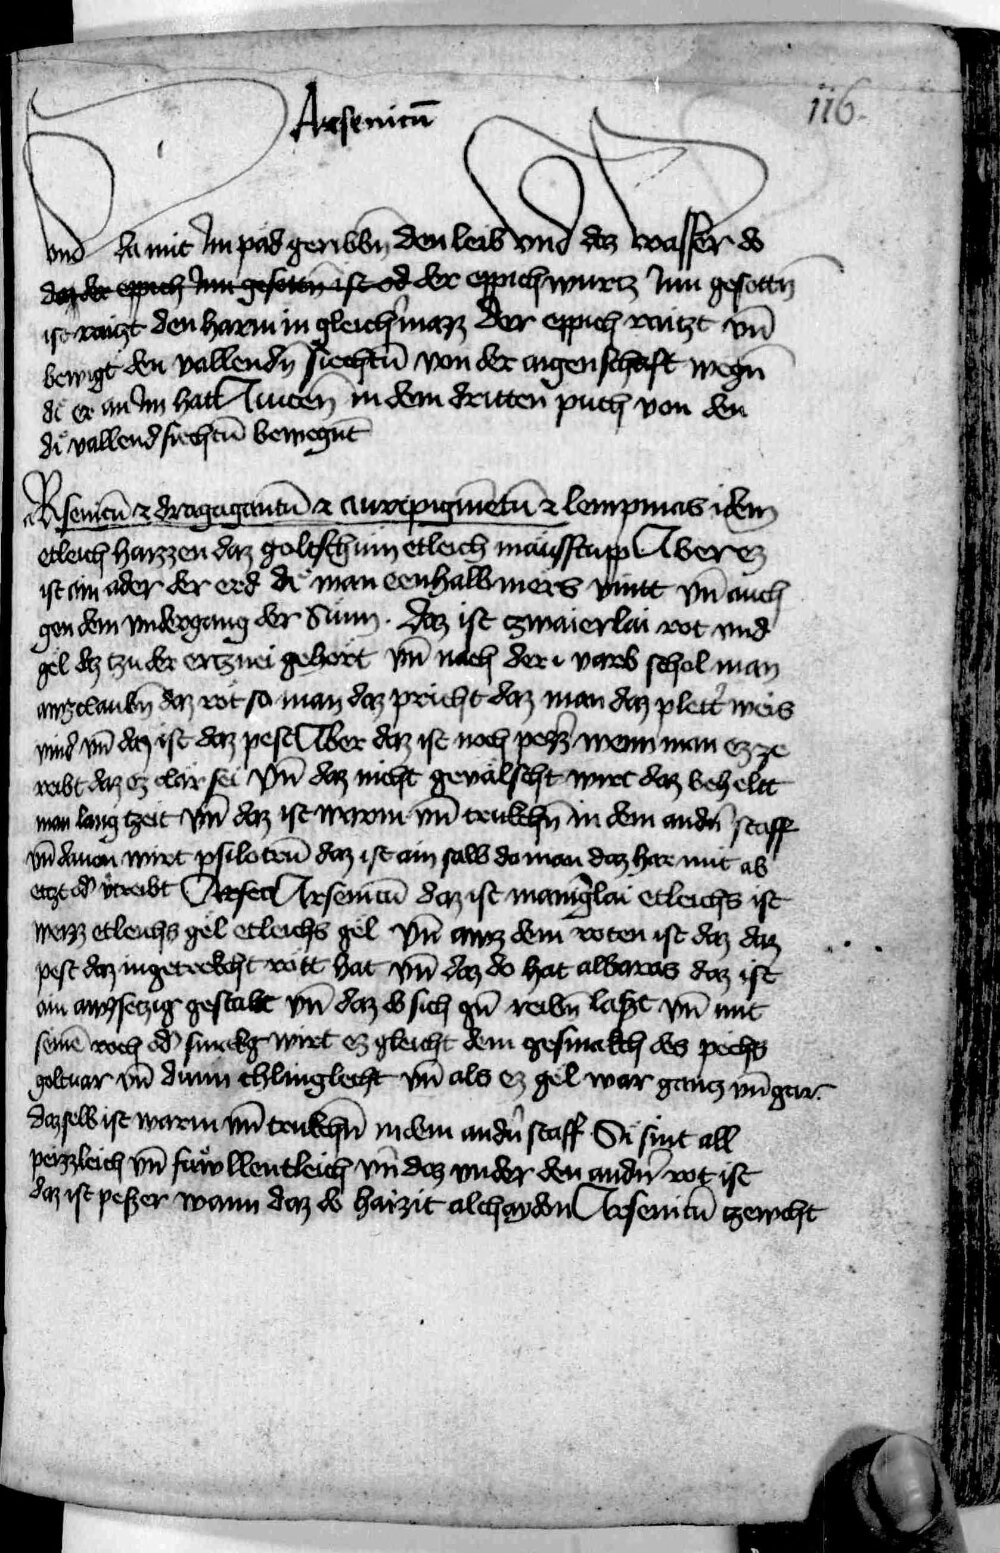 Arsenicū
116.
vnd da mit Im pad geribbn̄ den leib vnd daz wasser do
daz der eppich Jnn gesottn̄ ist od der eppich wurtz Jnn gesottn̄
ist raitzt den harm in gleicher mazz Der eppich raitzt vn̄
bewigt den vallendn̄ siechtū von der aigenschaft wegn̄
di er an Im hat Auicen̄ in dem dritten puch von den
di vallend siechtū bewegnt
ARsenicū & dragagantū & auripigmētū & lempmas idem
etleich haizzen daz goltschim etleich mäussstupp Aber ez
ist ain ader der erd di man eenhalb mers vintt vn̄ auch
gen dem vndergang der Sunn. Daz ist tzwaierlai rot vnd
gel daz tzu der ertznei gehort vn̄ nach der varb schol man
awzclaubn̄ daz rot so man daz pricht daz man daz plettr̄ weis
vind vn̄ daz ist daz pest Aber daz ist noch pezzr̄ wenn man ez ze
reibt daz ez clar sei vn̄ daz nicht gevälscht wirt daz beheltt
man lang tzeit vn̄ daz ist warm vn̄ trukchn̄ in dem andn̄ staff
vn̄ dauon wirt psilotrū daz ist ain salb do man daz har mit ab
etzt od vtreibt Arsenicū daz ist manigˀlai etleichs ist
weizz etleichs gel etleichs gel vn̄ awz dem roten ist daz daz
pest daz ingetrekcht rött hat vn̄ daz do hat albaras daz ist
ain awzsetzig gestalt vn̄ daz do sich gn̄ reibn̄ läszt vn̄ mit
seinē roch od smekg wirt ez gleicht dem gesmakch des pechs
goltuar vn̄ dünn chlinglecht vn̄ als ez gel war gantz vn̄ gar.
dazselb ist warm vn̄ trukchn̄ in dem andn̄ staff Si sint all
peizzleich vn̄ fawllentleich vn̄ daz vnder den andn̄ rot ist
daz ist peszer wann daz do haizit alchaydon Arsenicū tzewcht